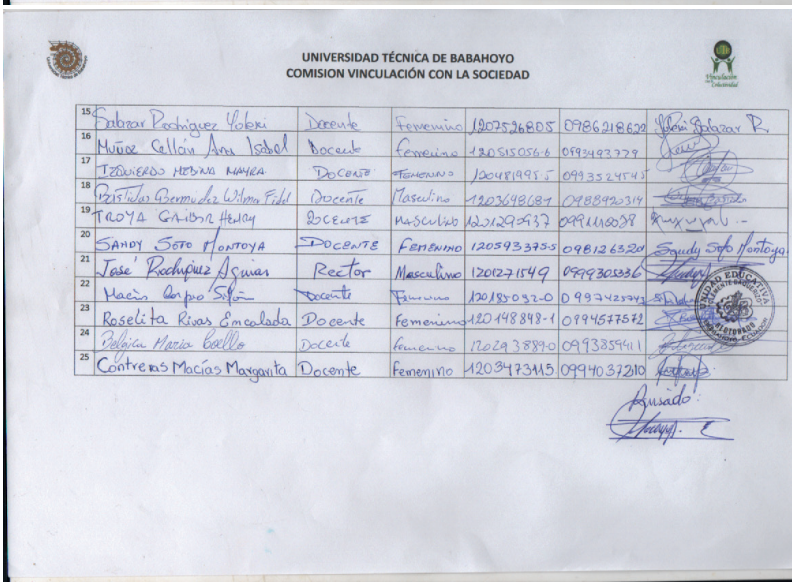 UNIVERSIDAD TÉCNICA DE BABAHOYO
COMISION VINCULACIÓN CON LA SOCIEDAD
15 Salazar Rodriguez Yoleni Docente Femenino 1207526805 0986218622 Yoleni Salazar R.
16 Muñoz Cellán Ana Isabel Docente femenino 120515056-6 0993493779
17 IZQUIERDO MEDINA MAYRA DOCENTE FEMENINO 120481995-5 0993524545
18 Bastidas Bermudez Wilma Fidel Docente Masculino 1203698681 0988920314
19 TROYA GAIBOR HENRY DOCENTE MASCULINO 1201290937
20 SANDY SOTO MONTOYA DOCENTE FEMENINO 120593375-5 098126320 Sandy Soto Montoya.
21 José Rodríguez Aguiar Rector Masculino 1201271549 0999305336
22 Macias Docente Femenino
23 Roselita Rivas Encalada Docente Femenino 120148848-1 0994577572
24 Belgica Maria Coello Docente femenino 120293889-0 0993859411
25 Contreras Macías Margarita Docente Femenino 1203473115 0994037210
UNIDAD EDUCATIVA
Revisado: